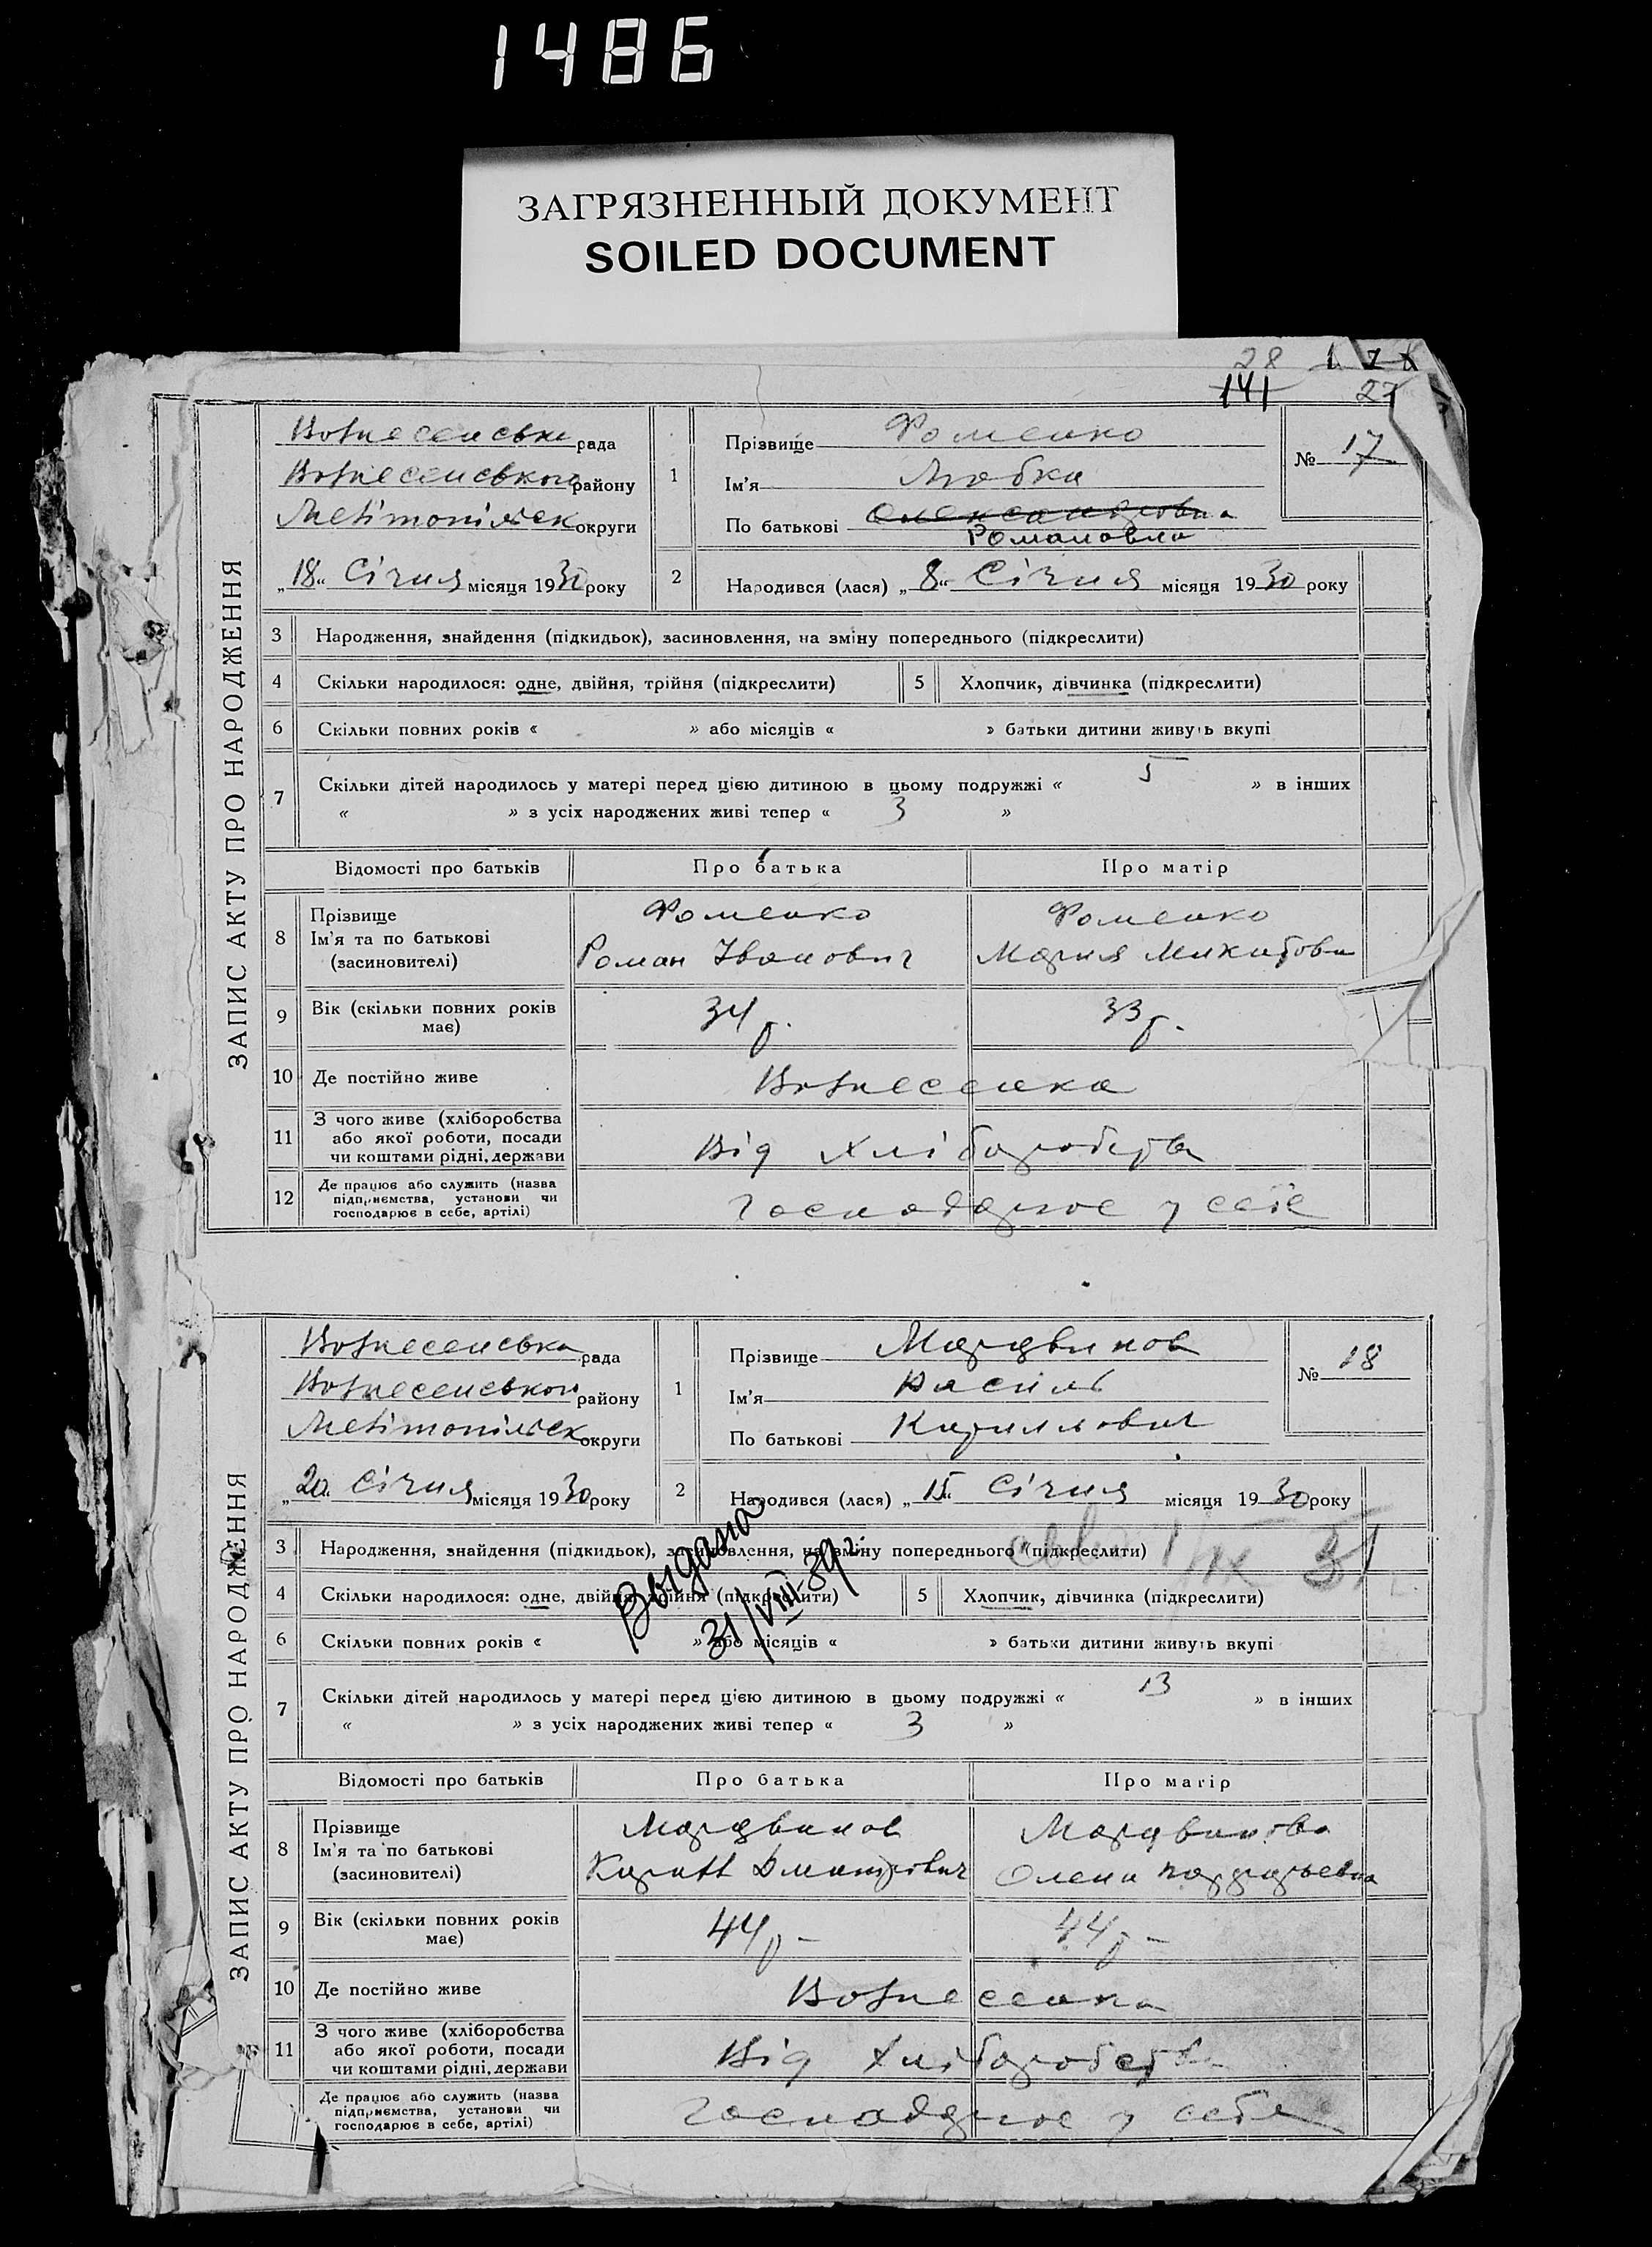 1486
ЗАГРЯЗНЕННЫЙ ДОКУМЕНТ
SOILED DOCUMENT
28
141
27
ЗАПИС АКТУ ПРО НАРОДЖЕННЯ
Вознесенська рада
Вознесенського району
Мелітопільск округи
„18“ Січня місяця 1930 року
1
Прізвище Фоменко
Ім'я Любка
По батькові Олександровна
Романовна
№ 17
2
Народився (лася) „8“ Січня місяця 1930 року
3 Народження, знайдення (підкидьок), засиновлення, на зміну попереднього (підкреслити)
4 Скільки народилося: одне, двійня, трійня (підкреслити) 5 Хлопчик, дівчинка (підкреслити)
6 Скільки повних років « » або місяців « » батьки дитини живуть вкупі
7 Скільки дітей народилось у матері перед цією дитиною в цьому подружжі « 5 » в інших
« » з усіх народжених живі тепер « 3 »
Відомості про батьків Про батька Про матір
8 Прізвище Фоменко Фоменко
Ім'я та по батькові Роман Іванович Мария Микитовн
(засиновителі)
9 Вік (скільки повних років має) 34 р. 33 р.
10 Де постійно живе Вознесенка
11 З чого живе (хліборобства
або якої роботи, посади
чи коштами рідні, держави Від хліборобства
12 Де працює або служить (назва
підприємства, установи чи
господарює в себе, артілі) Господарює у себе
ЗАПИС АКТУ ПРО НАРОДЖЕННЯ
Вознесенська рада
Вознесенського району
Мелітопільск округи
„20“ Січня місяця 1930 року
1
Прізвище Мордвинов
Ім'я Василь
По батькові Кириллович
№ 18
2
Народився (лася) „15“ Січня місяця 1930 року
3 Народження, знайдення (підкидьок), засиновлення, на зміну попереднього (підкреслити)
4 Скільки народилося: одне, двійня, трійня (підкреслити) 5 Хлопчик, дівчинка (підкреслити)
Выдана
31/VIII-39 г.
6 Скільки повних років « » або місяців « » батьки дитини живуть вкупі
7 Скільки дітей народилось у матері перед цією дитиною в цьому подружжі « 13 » в інших
« » з усіх народжених живі тепер « 3 »
Відомості про батьків Про батька Про матір
8 Прізвище Мордвинов Мордвинова
Ім'я та по батькові Дмитрович Олена
(засиновителі)
9 Вік (скільки повних років має) 44 р - 44 р -
10 Де постійно живе Вознесенка
11 З чого живе (хліборобства
або якої роботи, посади
чи коштами рідні, держави Від хліборобства
Де працює або служить (назва
підприємства, установи чи
господарює в себе, артілі) Господарює у себе